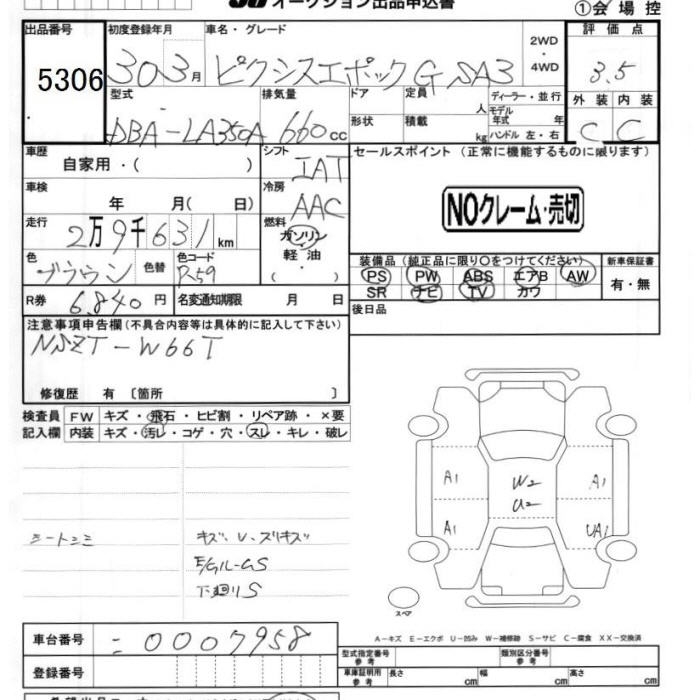 オークション出品申込書
①会場控
出品番号 初度登録年月 車名・グレード 評価点
5306 30 3月 ピクシスエポック G SA3 2WD・4WD 3.5
型式 排気量 ドア 定員 人 ディーラー・並行 外装 内装
DBA-LA350A 660cc 形状 積載 kg モデル年式 年 ハンドル 左・右 C C
車歴 自家用・( ) シフト IAT セールスポイント (正常に機能するものに限ります)
車検 年 月( 日) 冷房 AAC
NOクレーム・売切
走行 2万9千631km 燃料 ガソリン・軽油
色 ブラウン 色替 色コード R59
装備品 (純正品に限り○をつけてください) 新車保証書
PS PW ABS エアB AW 有・無
SR ナビ TV カワ
R券 6.840円 名変通知期限 月 日
後日品
注意事項申告欄(不具合内容等は具体的に記入して下さい)
NSZT-W66T
修復歴 有 〔箇所 〕
検査員 FW キズ・飛石・ヒビ割・リペア跡・×要
記入欄 内装 キズ・汚レ・コゲ・穴・スレ・キレ・破レ
A1 W2 A1
U2
A1 UA1
シートシミ キズ、U、スリキズ
E/Gルーム-S
下廻りS
スペア
A−キズ E−エクボ U−凹み W−補修跡 S−サビ C−腐食 XX−交換済
車台番号 =0007958
登録番号
型式指定番号 参考 類別区分番号 参考
車庫証明用 参考 長さ cm 幅 cm 高さ cm